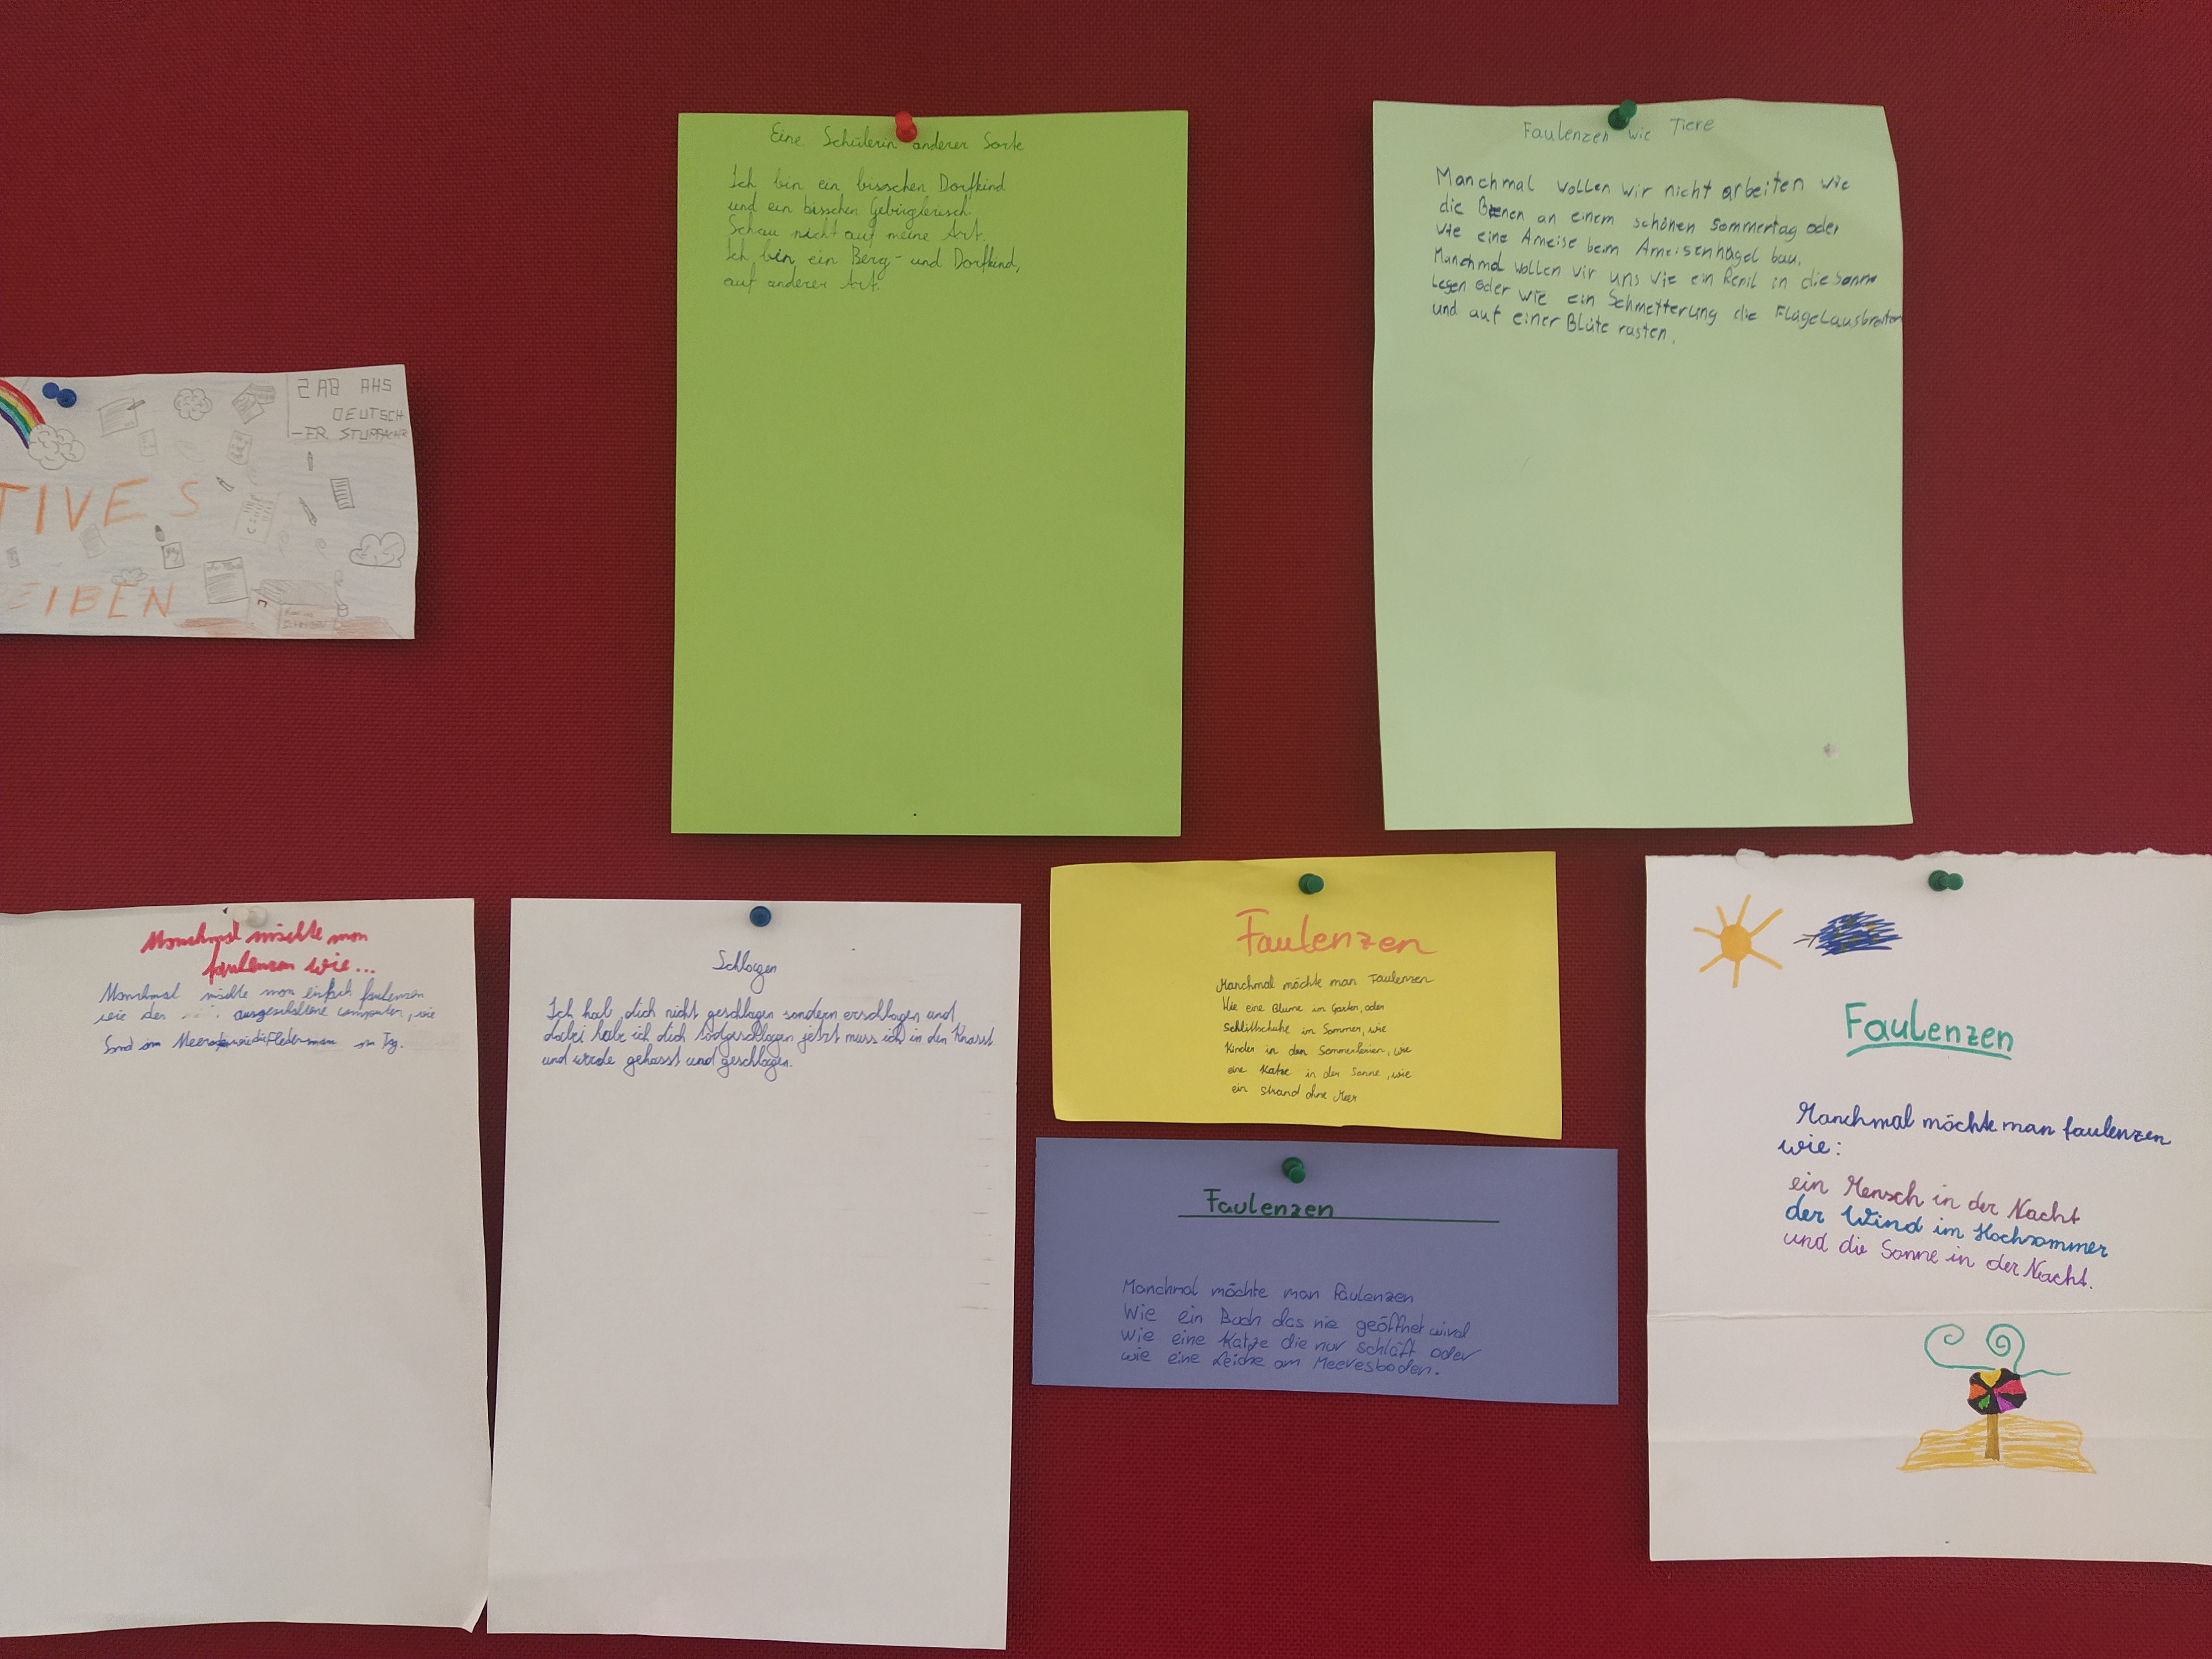 2AB AHS
DEUTSCH
-FR. STUPPACHER
TIVES
EIBEN
Eine Schülerin anderer Sorte
Ich bin ein bisschen Dorfkind
und ein bisschen Gebirglerisch.
Schau nicht auf meine Art.
Ich bin ein Berg- und Dorfkind,
auf anderer Art.
Faulenzen wie Tiere
Manchmal wollen wir nicht arbeiten wie
die Bienen an einem schönen Sommertag oder
wie eine Ameise beim Ameisenhügel bau.
Manchmal wollen wir uns wie ein Reptil in die Sonne
legen oder wie ein Schmetterling die Flügel ausbreiten
und auf einer Blüte rasten.
Manchmal möchte man
faulenzen wie...
Manchmal möchte man einfach faulenzen
wie der ausgeschaltene computer, wie
Sand im Meer wie die Fledermaus am Tag.
Schlagen
Ich hab dich nicht geschlagen sondern erschlagen und
dabei habe ich dich todgeschlagen jetzt muss ich in den Knast
und werde gehasst und geschlagen.
Faulenzen
Manchmal möchte man Faulenzen
Wie eine Blume im Garten, oder
Schlittschuhe im Sommer, wie
Kinder in den Sommerferien, wie
eine Katze in der Sonne, wie
ein Strand ohne Meer
Faulenzen
Manchmal möchte man Faulenzen
Wie ein Buch das nie geöffnet wird
wie eine Katze die nur schläft oder
wie eine Leiche am Meeresboden.
Faulenzen
Manchmal möchte man faulenzen
wie:
ein Mensch in der Nacht
der Wind im Hochsommer
und die Sonne in der Nacht.